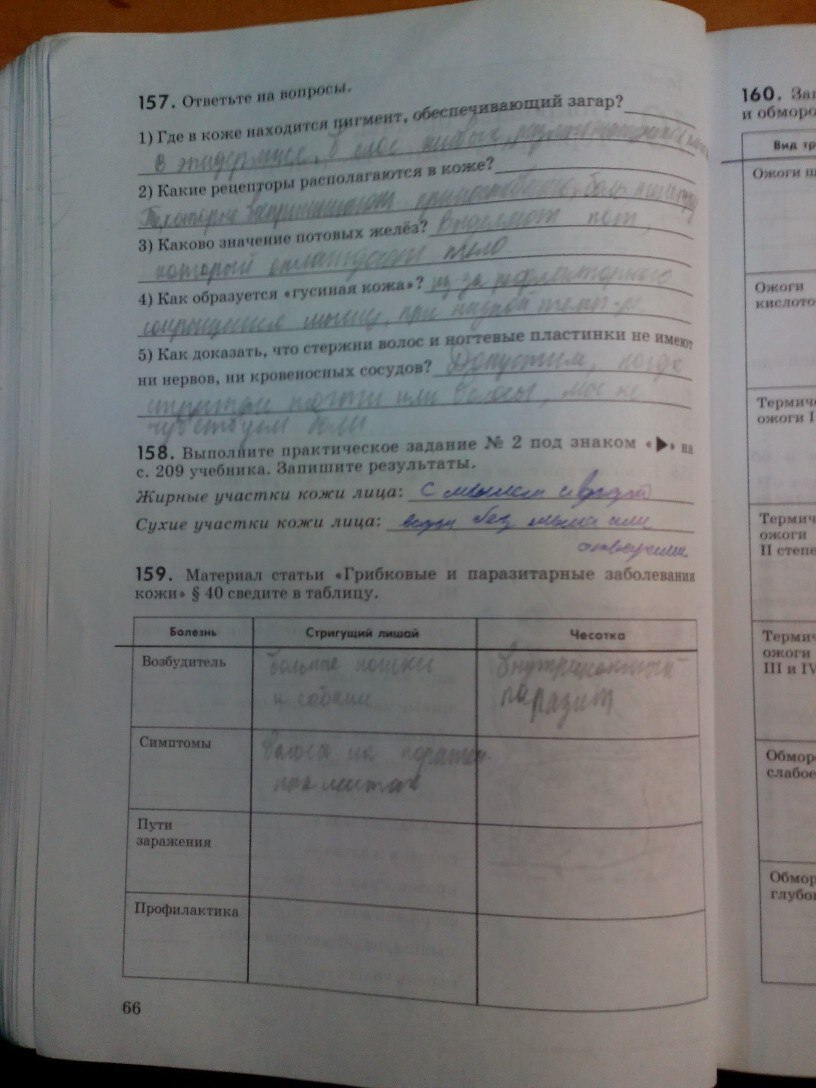 157. Ответьте на вопросы.
1) Где в коже находится пигмент, обеспечивающий загар?
в эпидермисе, в слое живых,
2) Какие рецепторы располагаются в коже?
боль
3) Каково значение потовых желёз? Выделяют пот,
который тело
4) Как образуется «гусиная кожа»? из за рефлекторного
сокращения мышц, при низкой темп-ре
5) Как доказать, что стержни волос и ногтевые пластинки не имеют
ни нервов, ни кровеносных сосудов? Допустим, когда
стрижем ногти или волосы, мы не
чувствуем боли
158. Выполните практическое задание № 2 под знаком «▶» на
с. 209 учебника. Запишите результаты.
Жирные участки кожи лица: с мылом и водой
Сухие участки кожи лица: без мыла или
159. Материал статьи «Грибковые и паразитарные заболевания
кожи» § 40 сведите в таблицу.
Болезнь Стригущий лишай Чесотка
Возбудитель больные кошки внутрикожный
и собаки паразит
Симптомы волосы на
местах
Пути
заражения
Профилактика
66
160.
и обморо
Вид тр
Ожоги
Ожоги
кислото
Термич
ожоги I
Термич
ожоги
II степе
Термич
ожоги
III и IV
Обмор
слабое
Обмор
глубо